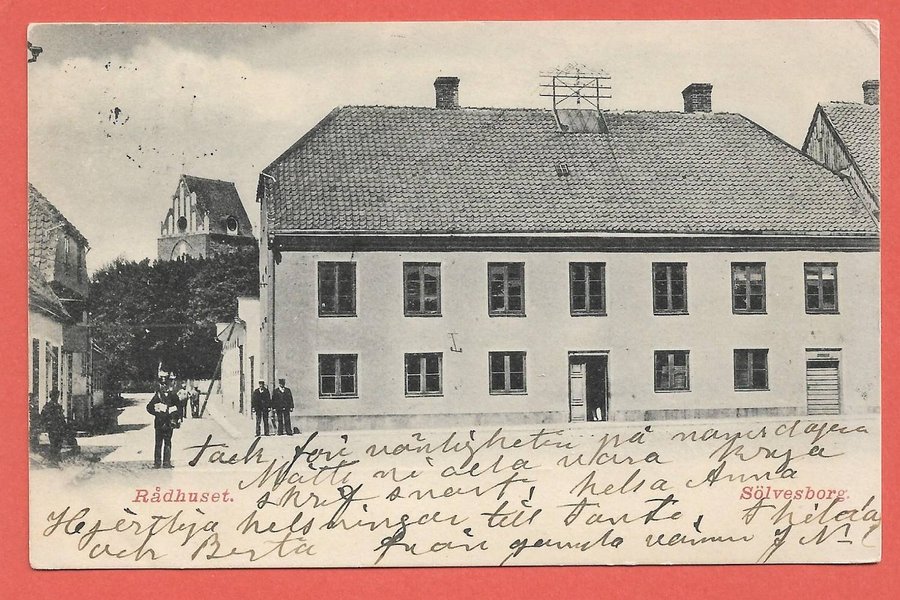 Tack för vänligheten på namsdagen
Måtte ni alla vara krya
skrif snart, helsa Anna
Rådhuset.
Sölvesborg.
Hjertliga helsningar till Tante, Thilda
och Berta från gamla vännen